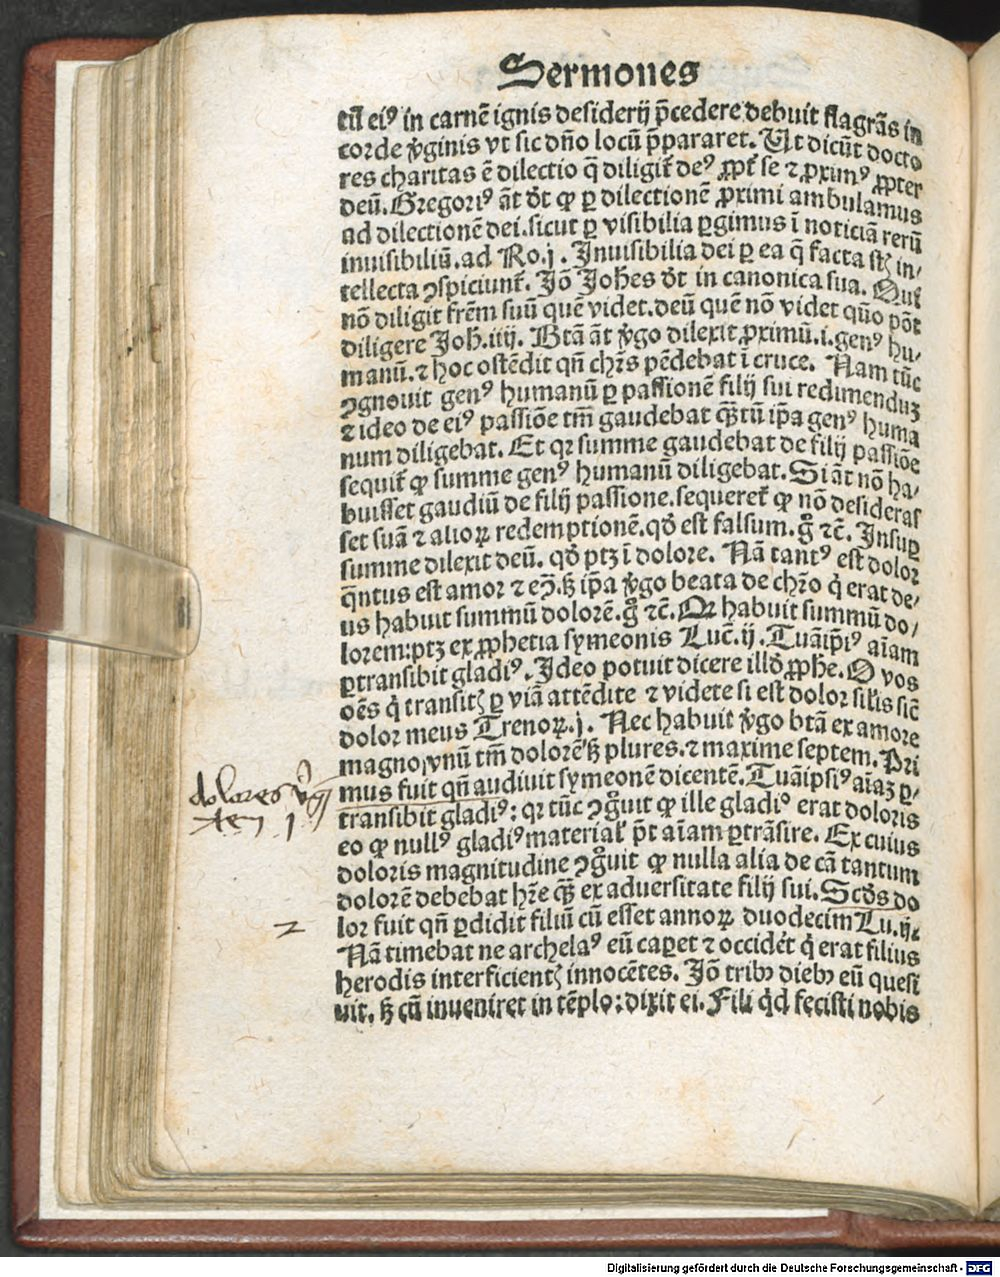 Sermones
tũ eiꝰ in carnē ignis desiderij p̄cedere debuit flagrãs in
corde v̓ginis vt sic dño locũ p̄pararet. Ut dicũt docto
res charitas ē dilectio q̄ diligit̃ deꝰ ꝓpt̃ se ⁊ ꝓximꝰ ꝓpter
deũ. Gregoriꝰ ãt dt̓ ꝙ ꝑ dilectionē ꝓximi ambulamus
ad dilectionē dei. sicut ꝑ visibilia ꝑgimus ĩ noticiã rerũ
inuisibiliũ. ad Ro. j. Inuisibilia dei ꝑ ea q̄ facta st̃ in⸗
tellecta ꝯspiciunt̃. Jõ Johes dt̓ in canonica sua. Qui
nõ diligit frēm suũ quē videt. deũ quē nõ videt quõ põt
diligere Joh. iiij. Btã ãt v̓go dilexit ꝓximũ. i. genꝰ hu⸗
manũ. ⁊ hoc ostēdit qñ chr̃s pēdebat ĩ cruce. Nam tũc
ꝯgnouit genꝰ humanũ ꝑ passionē filij sui redimenduꝫ
⁊ ideo de eiꝰ passiõe tm̃ gaudebat qꝫtũ ip̃a genꝰ huma
num diligebat. Et qꝛ summe gaudebat de filij passiõe
sequit̃ ꝙ summe genꝰ humanũ diligebat. Si ãt nõ ha⸗
buisset gaudiũ de filij passione. sequeret̃ ꝙ nõ desideras
set suã ⁊ alioꝝ redemptionē. qd̓ est falsum. g̊ ⁊c̃. Insuꝑ
summe dilexit deũ. qd̓ ptꝫ ĩ dolore. Nã tantꝰ est dolor
q̄ntus est amor ⁊ eꝯ. sꝫ ip̃a v̓go beata de chr̃o q̓ erat de⸗
us habuit summũ dolorē. g̊ ⁊c̃. Qꝛ habuit summũ do⸗
lorem: ptꝫ ex ꝓphetia symeonis Luc̃. ij. Tuãip̃iꝰ aĩam
ꝑtransibit gladiꝰ. Ideo potuit dicere illd̓ ꝓphe. O vos
oẽs q̓ transitꝭ ꝑ viã attēdite ⁊ videte si est dolor sil̓is sic̃
dolor meus Trenoꝝ. j. Nec habuit v̓go btã ex amore
magno vnũ tm̃ dolorē sꝫ plures. ⁊ maxime septem. Pri
mus fuit qñ audiuit symeonē dicentē. Tuãipsiꝰ aĩaꝫ ꝑ⸗
transibit gladiꝰ: qꝛ tũc ꝯg̊uit ꝙ ille gladiꝰ erat doloris
eo ꝙ nullꝰ gladiꝰ material̓ p̄t aĩam ꝑtrãsire. Ex cuius
doloris magnitudine ꝯg̊uit ꝙ nulla alia de cã tantum
dolorē debebat hr̃e qꝫ ex aduersitate filij sui. Scd̓s do
lor fuit qñ ꝑdidit filiũ cũ esset annoꝝ duodecim Lu. ij.
Nã timebat ne archelaꝰ eũ caꝑet ⁊ occidēt q̓ erat filius
herodis interficientꝭ innocētes. Jõ tribꝰ diebꝰ eũ quesi
uit. sꝫ cũ inueniret in tēplo: dixit ei. Fili qd̓ fecisti nobis
dolores v̓gi
1
2
Digitalisierung gefördert durch die Deutsche Forschungsgemeinschaft - DFG